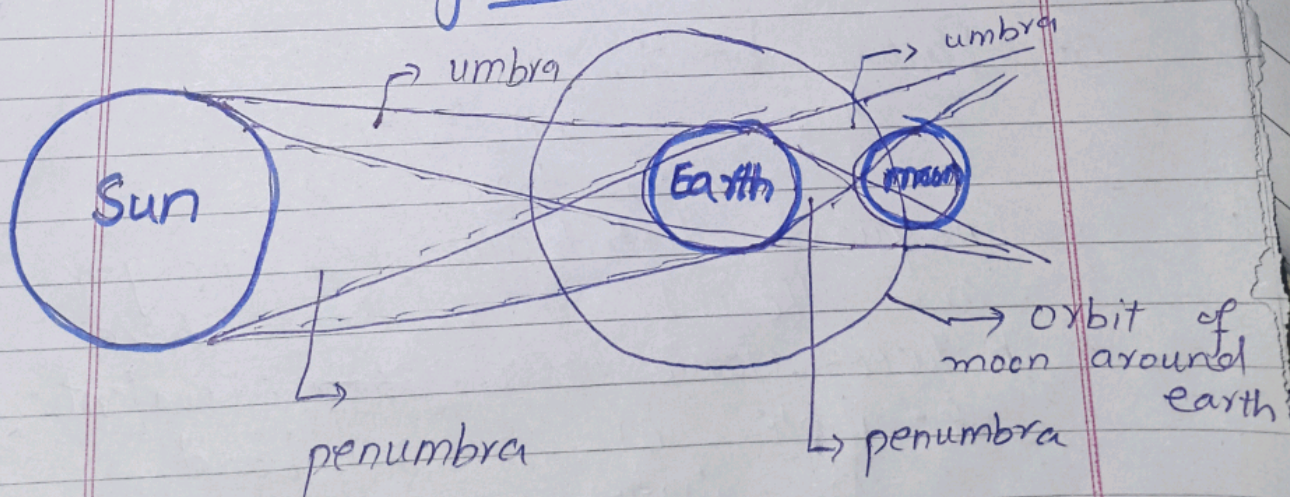 umbra
umbra
Sun
Earth
moon
orbit of
moon around
earth
penumbra
penumbra